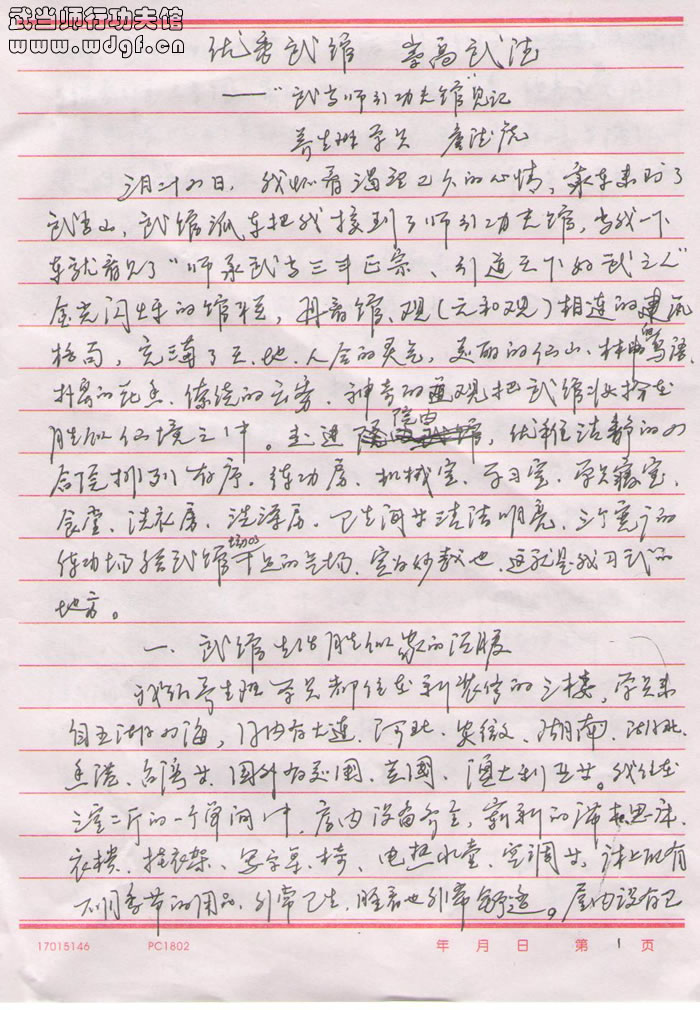 武当师行功夫馆
www.wdgf.cn
优秀武馆 崇高武德
——“武当师行功夫馆”见记
养生班学员
三月二十九日，我怀着渴望已久的心情，乘车来到了
武当山，武馆派车把我接到了师行功夫馆，当我一下
车就看见了“师承武当三丰正宗、引道天下好武之人”
金光闪烁的馆联，再看馆、观（元和观）相连的建筑
格局，充满了天、地、人合的灵气，美丽的仙山、林中的鸟语、
扑鼻的花香、缭绕的云雾、神奇的道观把武馆装扮在
胜似仙境之中。走进院内，优雅洁静的四
合院排列有序，练功房、机械室、学习室、学员寝室、
食堂、洗衣房、洗澡房、卫生间等清洁明亮，三个宽广的
练功场给武馆增加了十足的气场，实为妙哉也，这就是我习武的
地方。
一、武馆生活胜似家的温暖
我们养生班学员都住在新装修的三楼，学员来
自五湖四海，国内有大连、河北、安徽、湖南、湖北、
香港、台湾等，国外有美国、英国、澳大利亚等。我住在
三室二厅的一个单间中，房内设备齐全，崭新的席梦思床、
衣柜、挂衣架、写字桌、椅、电热水壶、空调等，床上配有
不同季节的用品，非常卫生，睡着也非常舒适。屋内设有卫
17015146 PC1802 年 月 日 第 1 页